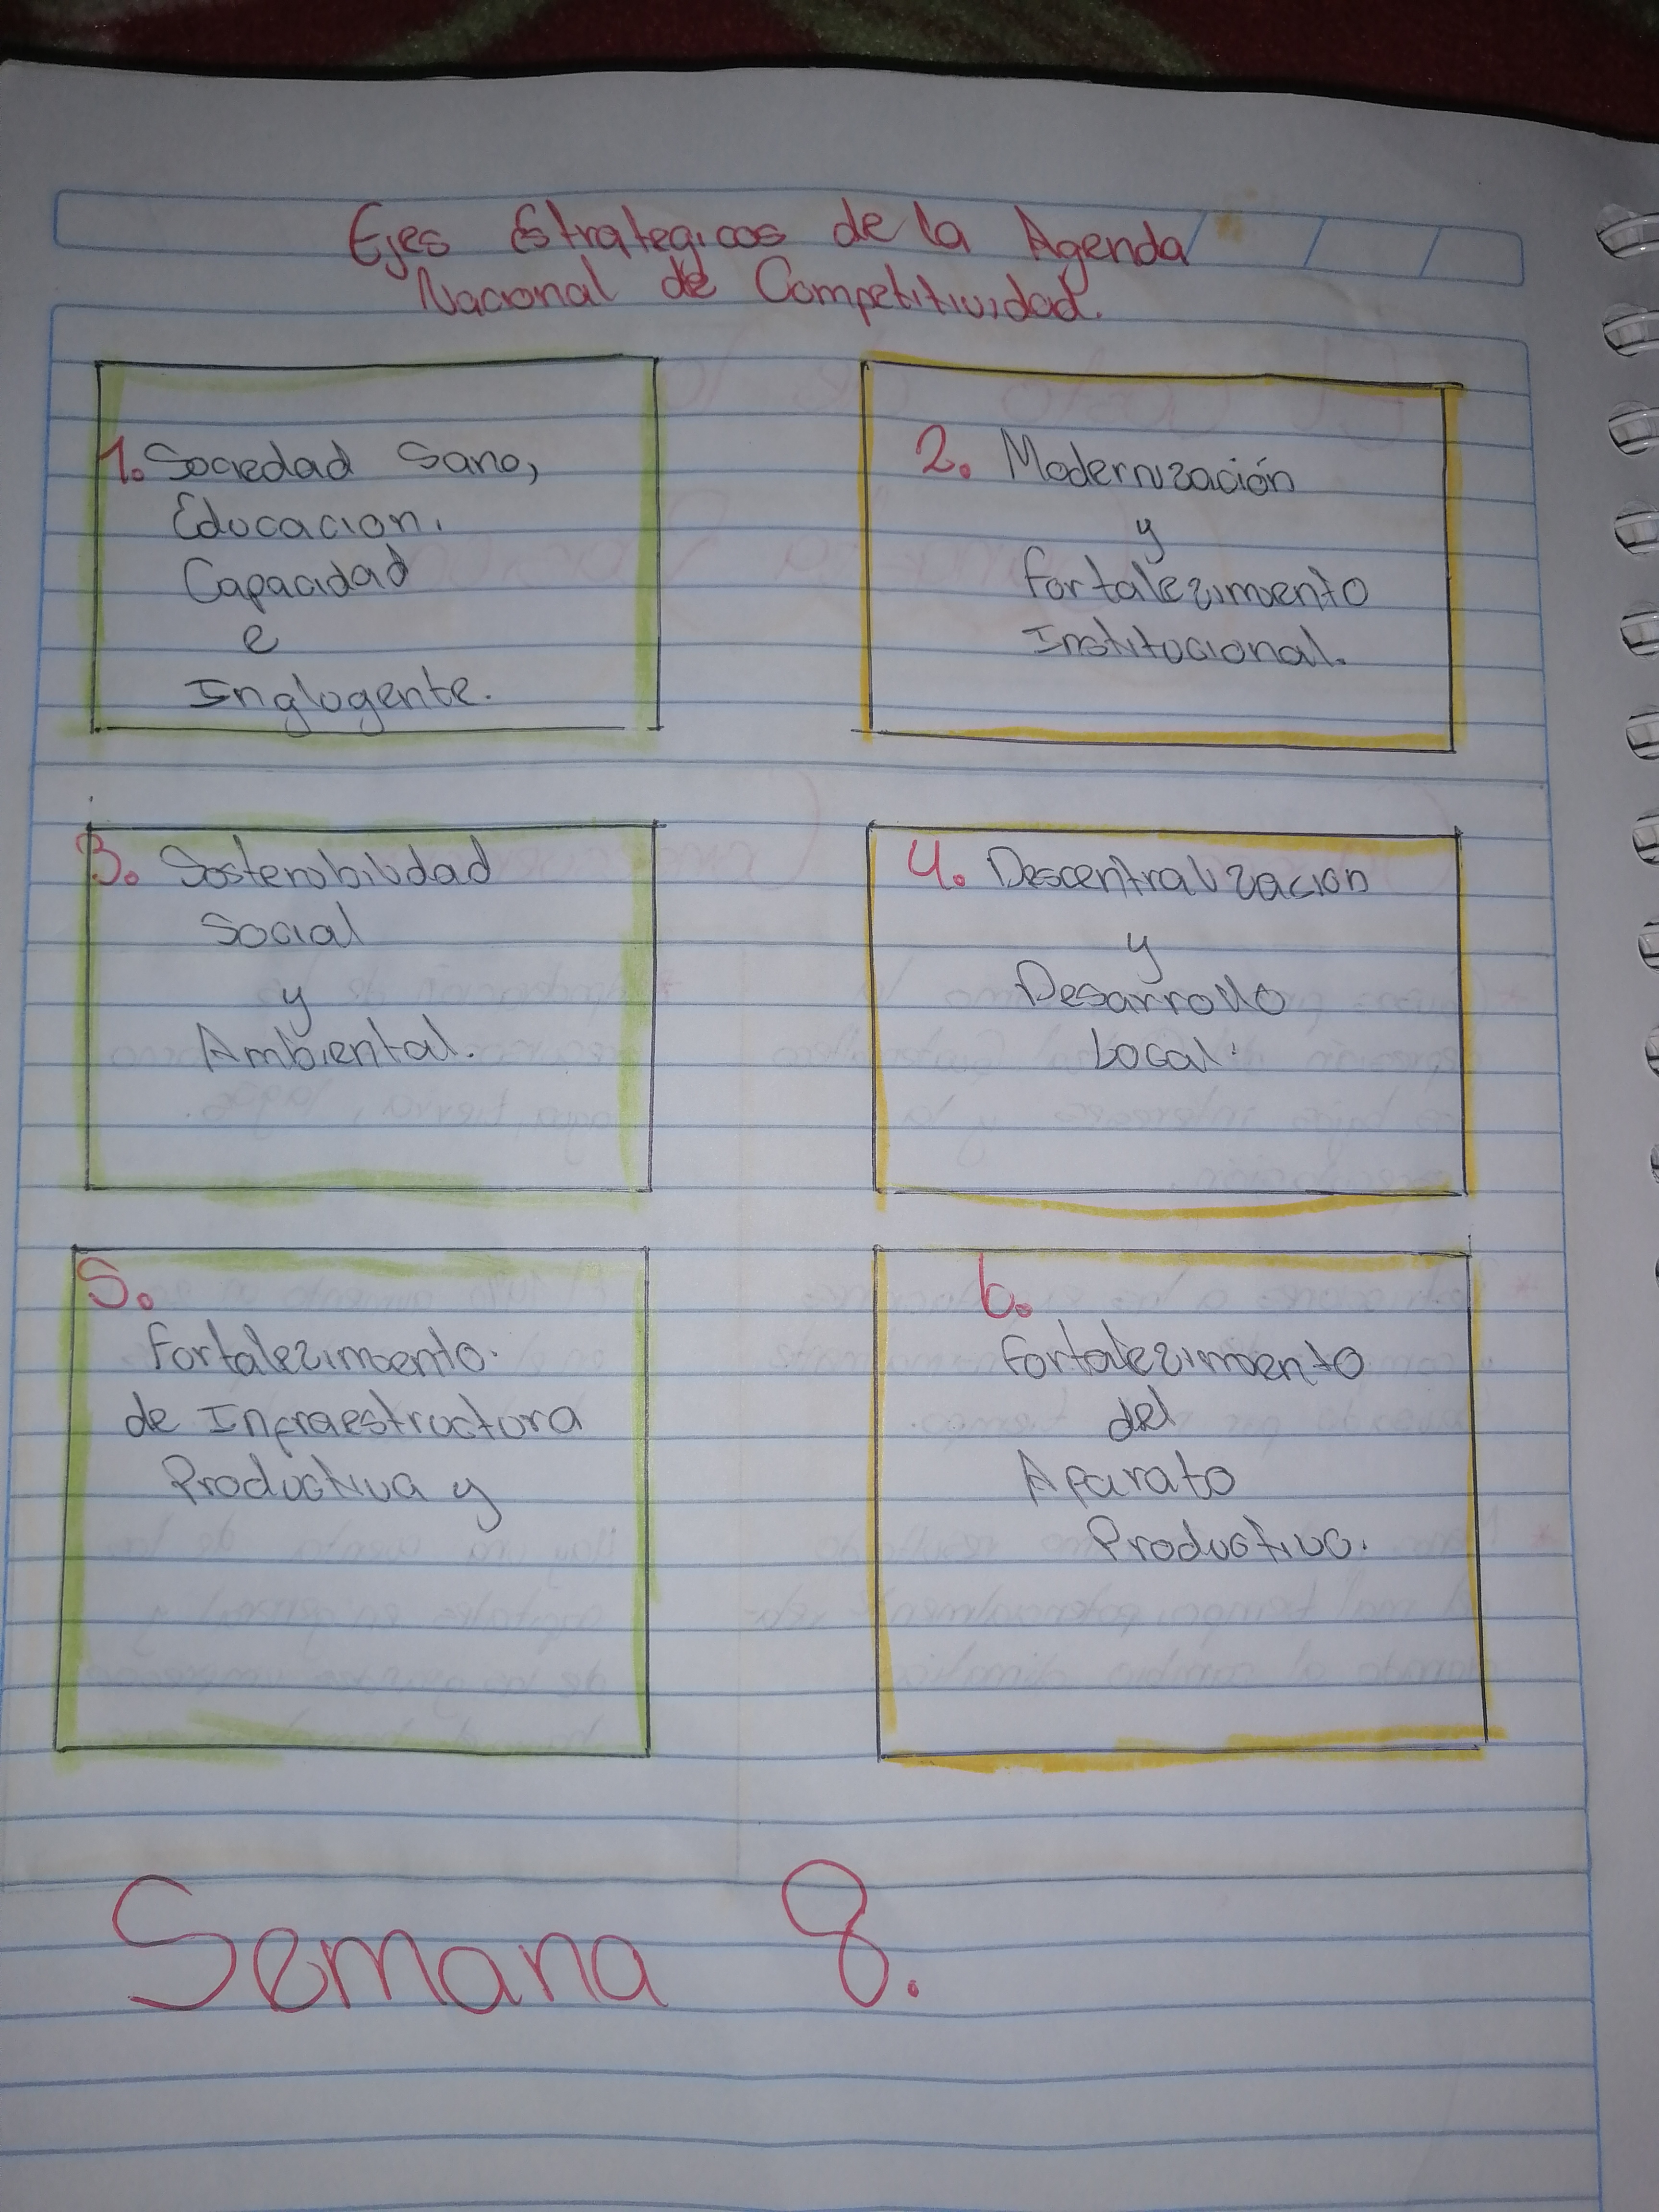 Ejes Estrategicos de la Agenda
Nacional de Competitividad.
1. Sociedad Sana,
Educacion.
Capacidad
e
Inglugente.
2. Modernización
y
Fortalezimiento
Institucional.
3. Sostenibilidad
Social
y
Ambiental.
4. Descentralizacion
y
Desarrollo
Local.
5.
Fortalezimiento.
de Infraestructura
Productiva y
6.
Fortalezimiento
del
Aparato
Productivo.
Semana 8.